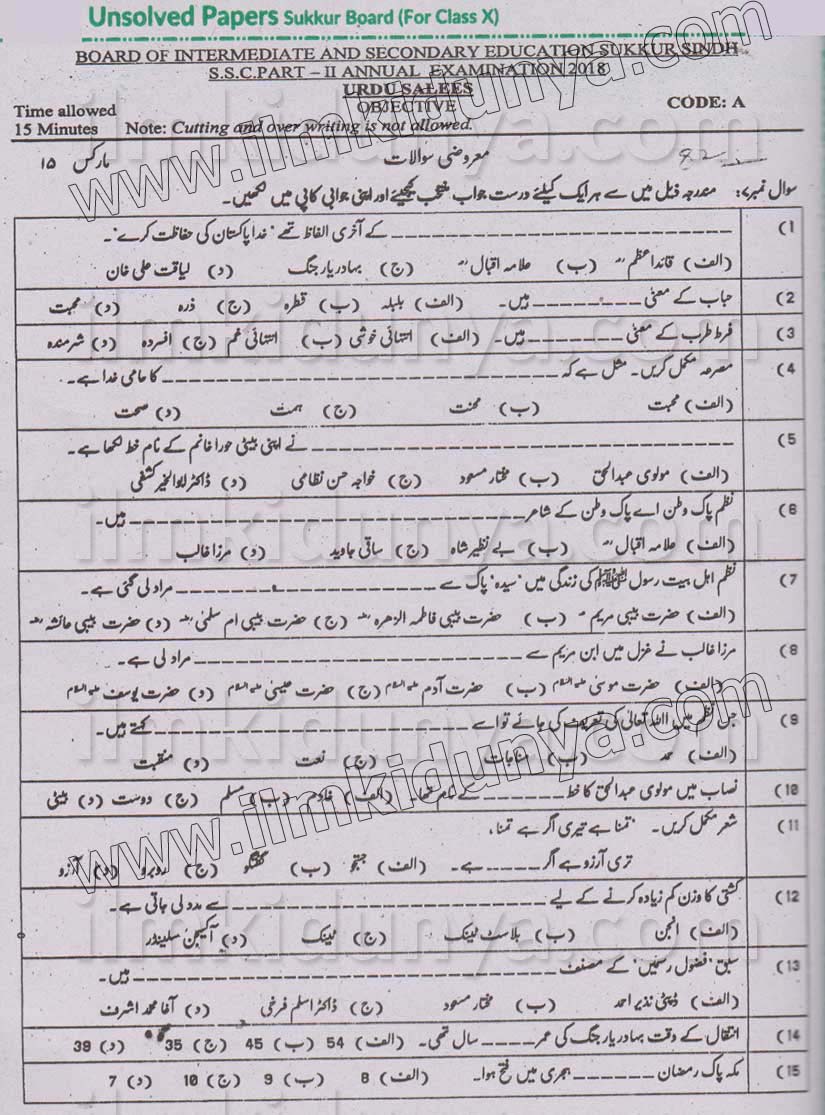 Unsolved Papers Sukkur Board (For Class X)
BOARD OF INTERMEDIATE AND SECONDARY EDUCATION SUKKUR SINDH
S.S.C.PART – II ANNUAL EXAMINATION 2018
URDU SALEES
Time allowed OBJECTIVE CODE: A
15 Minutes Note: Cutting and over writing is not allowed.
معروضی سوالات مارکس ۱۵
سوال نمبر۷: مندرجہ ذیل میں سے ہر ایک کیلئے درست جواب منتخب کیجئیے اور اپنی جوابی کاپی میں لکھیں۔
(1 ____________ کے آخری الفاظ تھے ’خدا پاکستان کی حفاظت کرے‘۔
(الف) قائداعظمؒ (ب) علامہ اقبالؒ (ج) بہادر یار جنگ (د) لیاقت علی خان
(2 حباب کے معنی ________ ہیں۔ (الف) بلبلہ (ب) قطرہ (ج) ذرہ (د) محبت
(3 فرط طرب کے معنی ________ ہیں۔ (الف) انتہائی خوشی (ب) انتہائی غم (ج) افسردہ (د) شرمندہ
(4 مصرعہ مکمل کریں۔ مثل ہے کہ ____________ کا حامی خدا ہے۔
(الف) محبت (ب) محنت (ج) ہمت (د) صحت
(5 ____________ نے اپنی بیٹی حورا خانم کے نام خط لکھا ہے۔
(الف) مولوی عبدالحق (ب) مختار مسعود (ج) خواجہ حسن نظامی (د) ڈاکٹر ابوالخیر کشفی
(6 نظم پاک وطن اے پاک وطن کے شاعر ____________ ہیں۔
(الف) علامہ اقبالؒ (ب) بے نظیر شاہ (ج) ساقی جاوید (د) مرزا غالب
(7 نظم اہل بیت رسول ﷺ کی زندگی میں ’سیدہ‘ پاک سے ____________ مراد لی گئی ہے۔
(الف) حضرت بیبی مریم (ب) حضرت بیبی فاطمہ الزہرہ (ج) حضرت بیبی ام سلمیٰ (د) حضرت بیبی عائشہ
(8 مرزا غالب نے غزل میں ابن مریم سے ____________ مراد لی ہے۔
(الف) حضرت موسیٰ علیہ السلام (ب) حضرت آدم علیہ السلام (ج) حضرت عیسیٰ علیہ السلام (د) حضرت یوسف علیہ السلام
(9 جن نظم میں اللہ تعالیٰ کی تعریف کی جائے تو اسے ____________ کہتے ہیں۔
(الف) حمد (ب) مناجات (ج) نعت (د) منقبت
(10 نصاب میں مولوی عبدالحق کا خط ________ کے نام تھا۔ (الف) خادم (ب) مسلم (ج) دوست (د) بیٹی
(11 شعر مکمل کریں۔ ’تمنا ہے تیری اگر ہے تمنا،
تری آرزو ہے اگر ____ ہے۔ (الف) جستجو (ب) گفتگو (ج) روبرو (د) آرزو
(12 کشتی کا وزن کم زیادہ کرنے کے لیے ____________ سے مدد لی جاتی ہے۔
(الف) انجن (ب) بلاسٹ ٹینک (ج) ٹینک (د) آکیجن سلینڈر
(13 سبق ’فضول رسمیں‘ کے مصنف ____________ ہیں۔
(الف) ڈپٹی نذیر احمد (ب) مختار مسعود (ج) ڈاکٹر اسلم فرخی (د) آغا محمد اشرف
(14 انتقال کے وقت بہادر یار جنگ کی عمر ____ سال تھی۔ (الف) 54 (ب) 45 (ج) 35 (د) 39
(15 مکہ پاک رمضان ________ ہجری میں فتح ہوا۔ (الف) 8 (ب) 9 (ج) 10 (د) 7
www.ilmkidunya.com
www.ilmkidunya.com
ilmkidunya.com
ilmkidunya.com
ilmkidunya.com
ilmkidunya.com
ilmkidunya.com